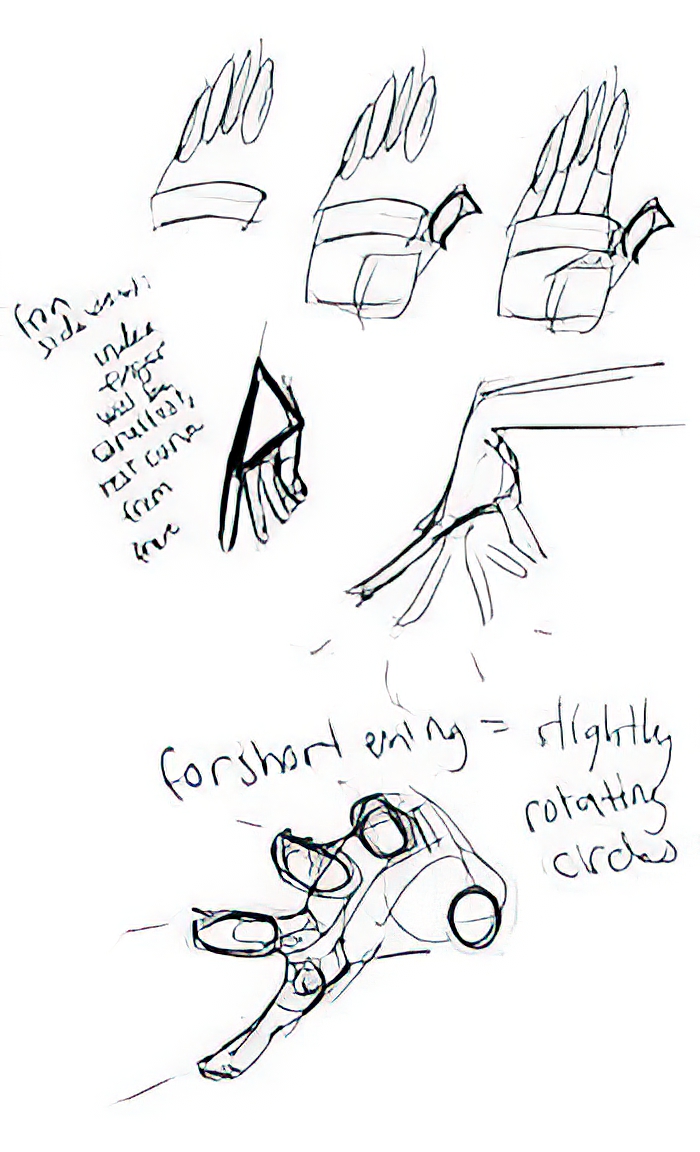 from
side
index
finger
will be
rest curve
from
forshortening = slightly
rotating
circles